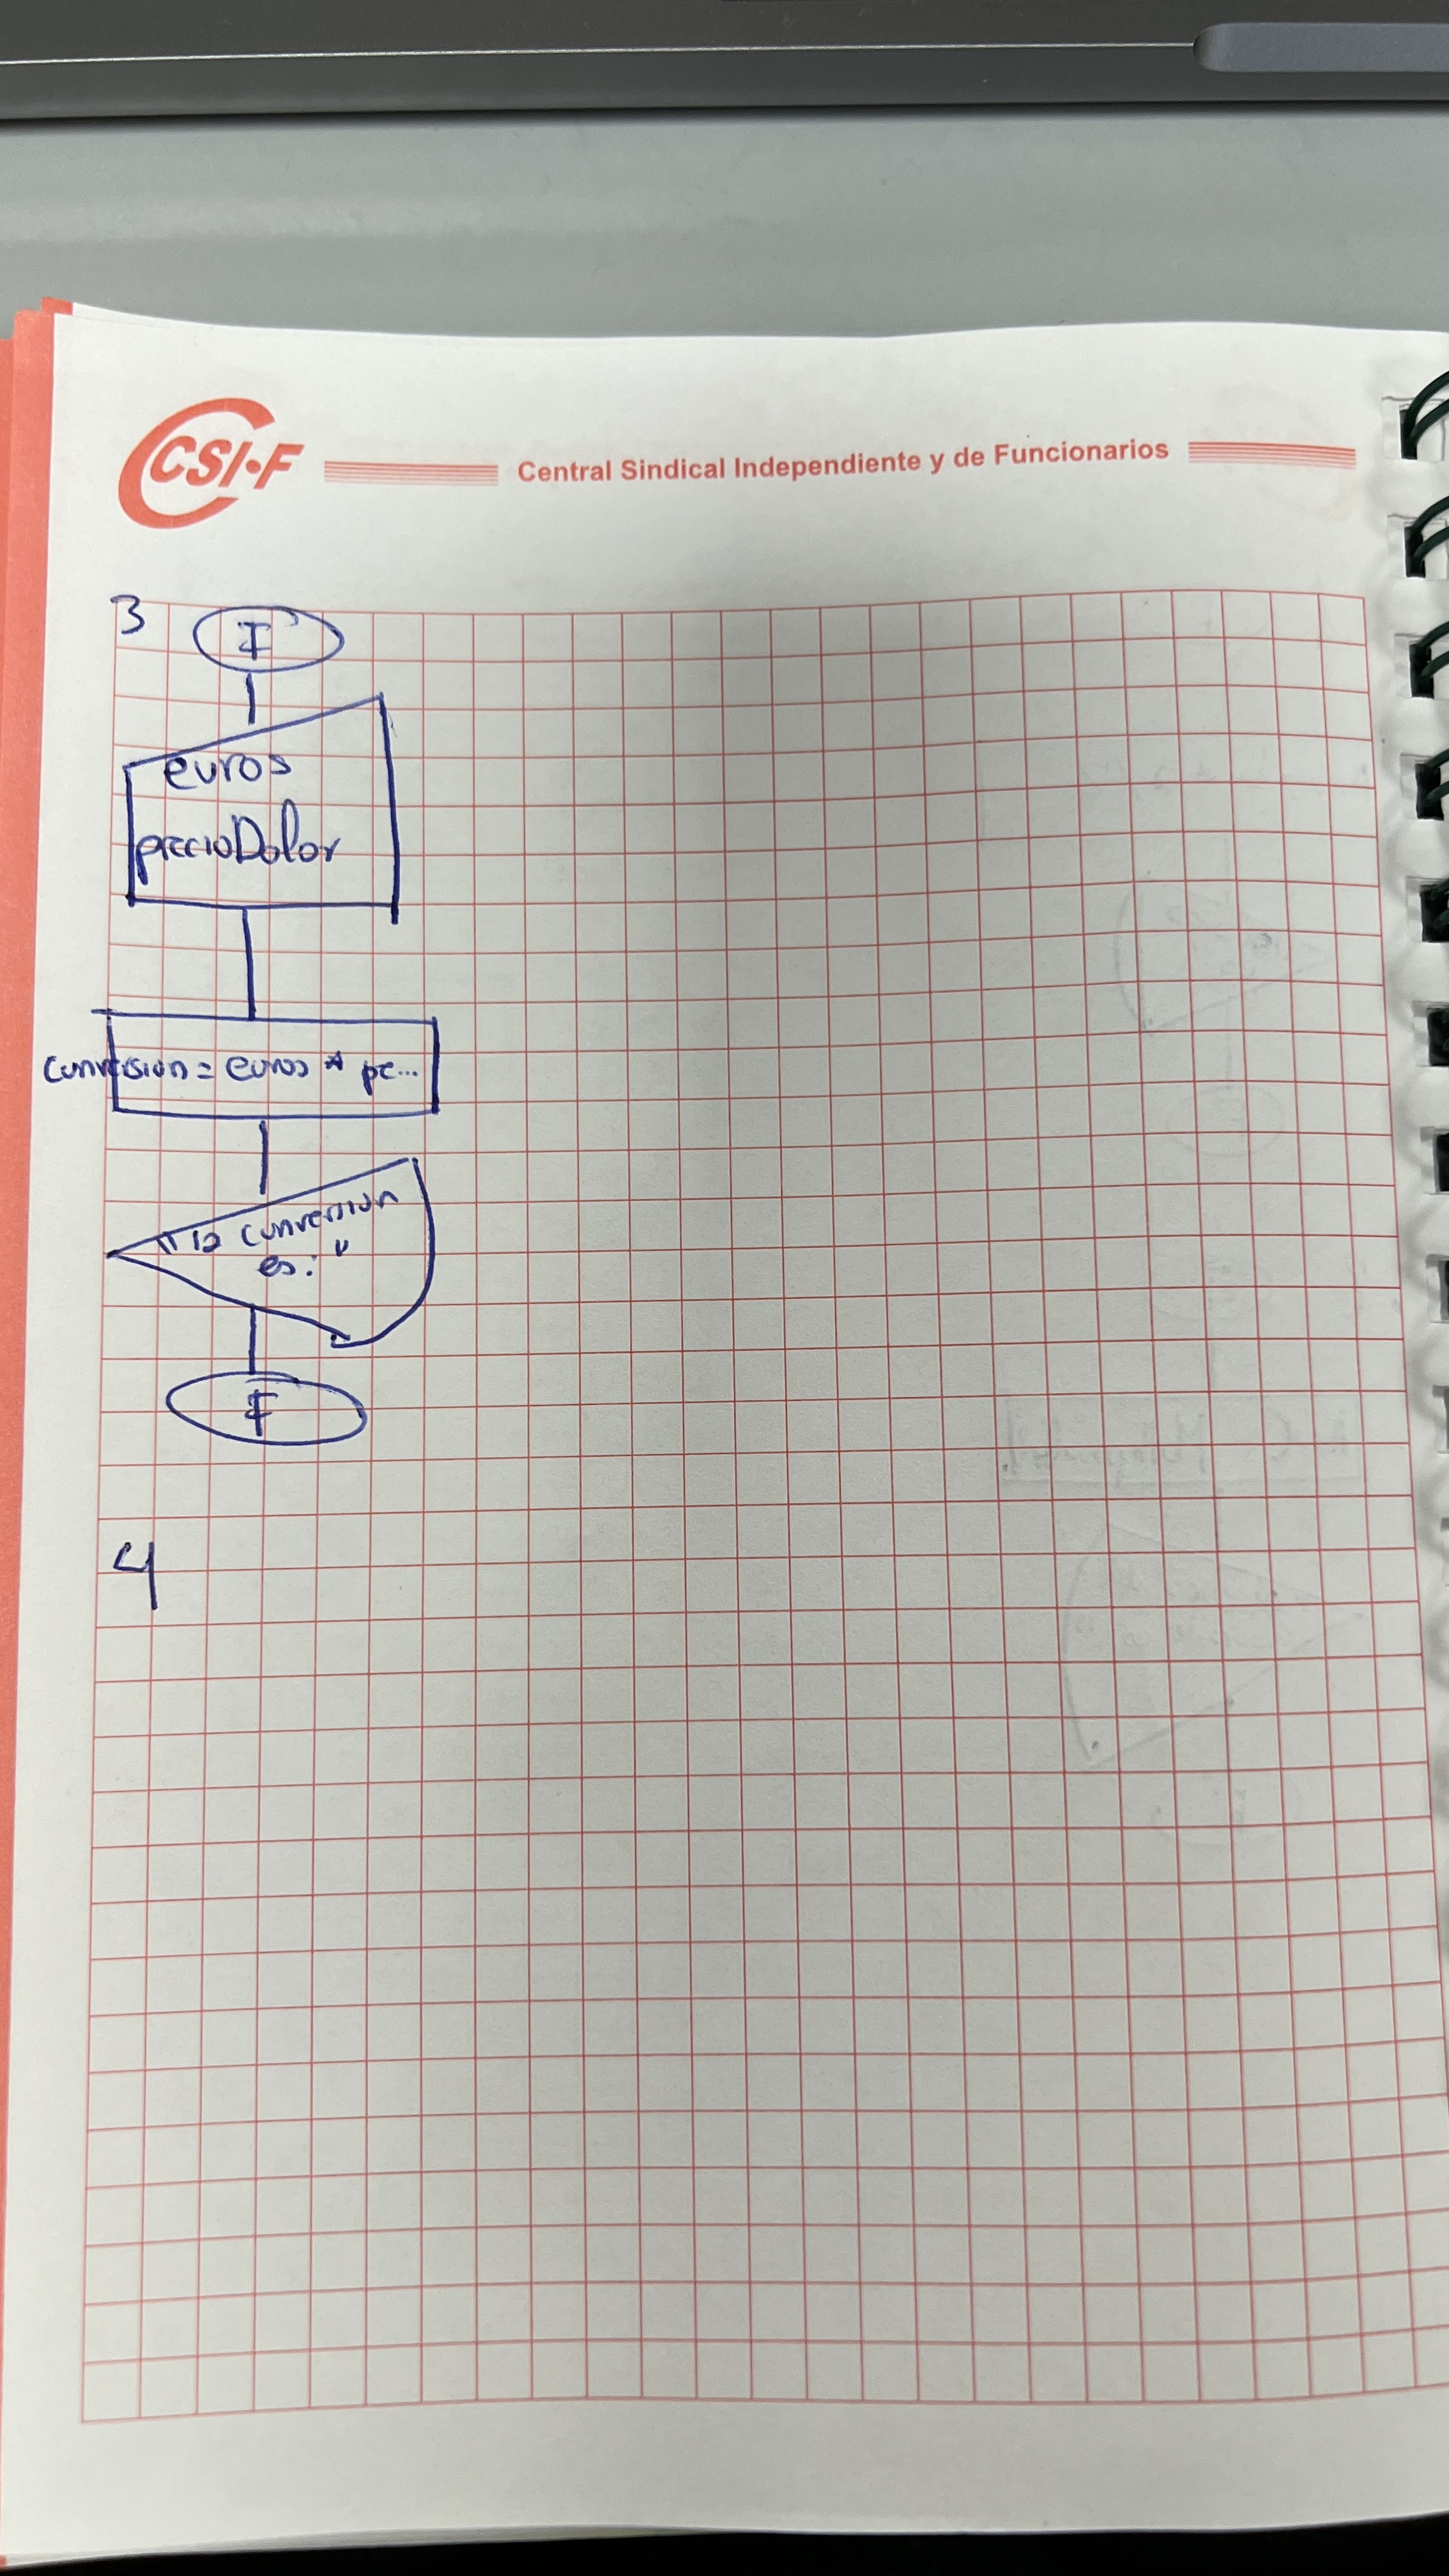 CSI•F
Central Sindical Independiente y de Funcionarios
3
I
euros
precioDolar
conversion = euros * pe...
"la conversion
es: "
F
4